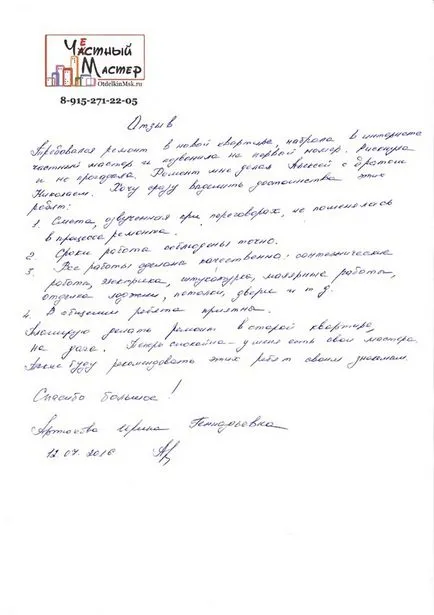 ЧЕстный
Мастер
OtdelkinMsk.ru
8-915-271-22-05
Отзыв
Требовался ремонт в новой квартире, набрала в интернете
частный мастер и позвонила на первый номер. Рискнула
и не прогадала. Ремонт мне делал Алексей с братом
Николаем. Хочу сразу выделить достоинства этих
ребят:
1. Смета, озвученная при переговорах, не поменялась
в процессе ремонта.
2. Сроки работа соблюдены точно.
3. Все работы сделаны качественно: сантехнические
работа, электрика, штукатурка, малярные работы,
отделка лоджии, потолки, двери и т д.
4. В общении ребята приятны.
Планирую делать ремонт в старой квартире,
на спокойна - у меня есть свои мастера
Также буду рекомендовать этих ребят своим знакомым.
Спасибо большое!
Ирина Геннадьевна
12.04.2016